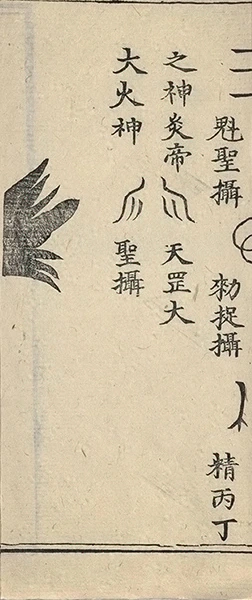 魁聖攝 勑捉攝 精丙丁
之神炎帝 天罡大
大火神 聖攝